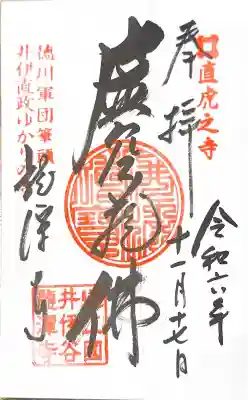 直虎之寺
奉拝
令和六年
十一月十七日
虚空蔵佛
龍潭寺
徳川軍団筆頭
井伊直政ゆかりの
井伊谷
龍潭寺